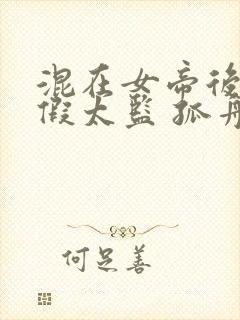 混在女帝後
假太監 孤舟
何足善